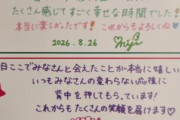 たくさん感じてすごく幸せな時間でした!
本当に楽しかったです! これからもよろしくね♡
2026.8.26
日ここでみなさんと会えたことが本当に嬉しい
いつもみなさんの変わらない応援に
背中を押してもらっています!
これからもたくさんの笑顔を届けます♡